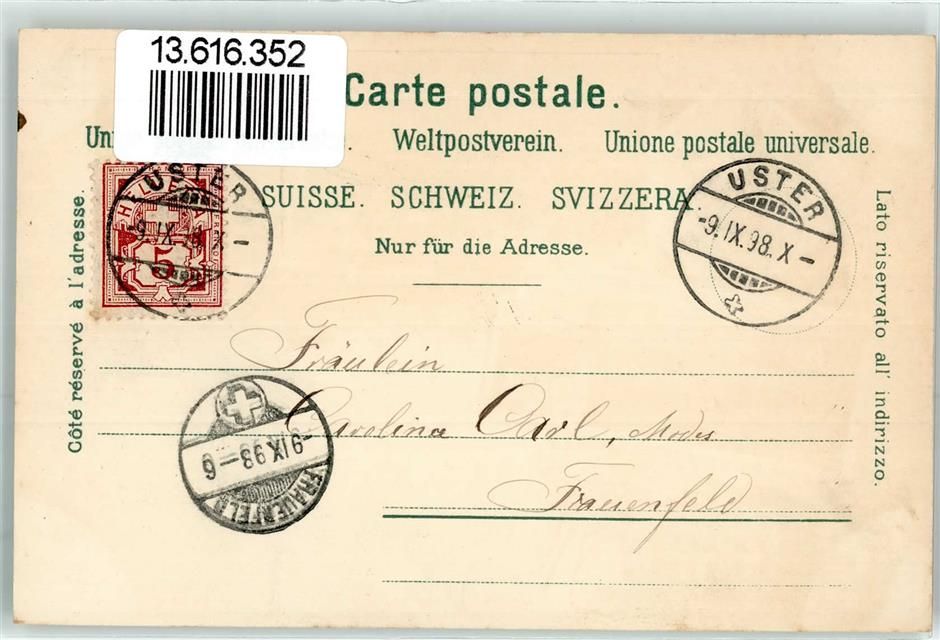 13.616.352
Carte postale.
Un . Weltpostverein. Unione postale universale.
SUISSE. SCHWEIZ. SVIZZERA
Nur für die Adresse.
Côté réservé à l'adresse.
Lato riservato all' indirizzo.
HELVETIA
5
USTER
-9.IX.98.X-
USTER
-9.IX.98.X-
Fräulein
Carolina Carl, Modes
Frauenfeld
-9.IX.98-6
FRAUENFELD